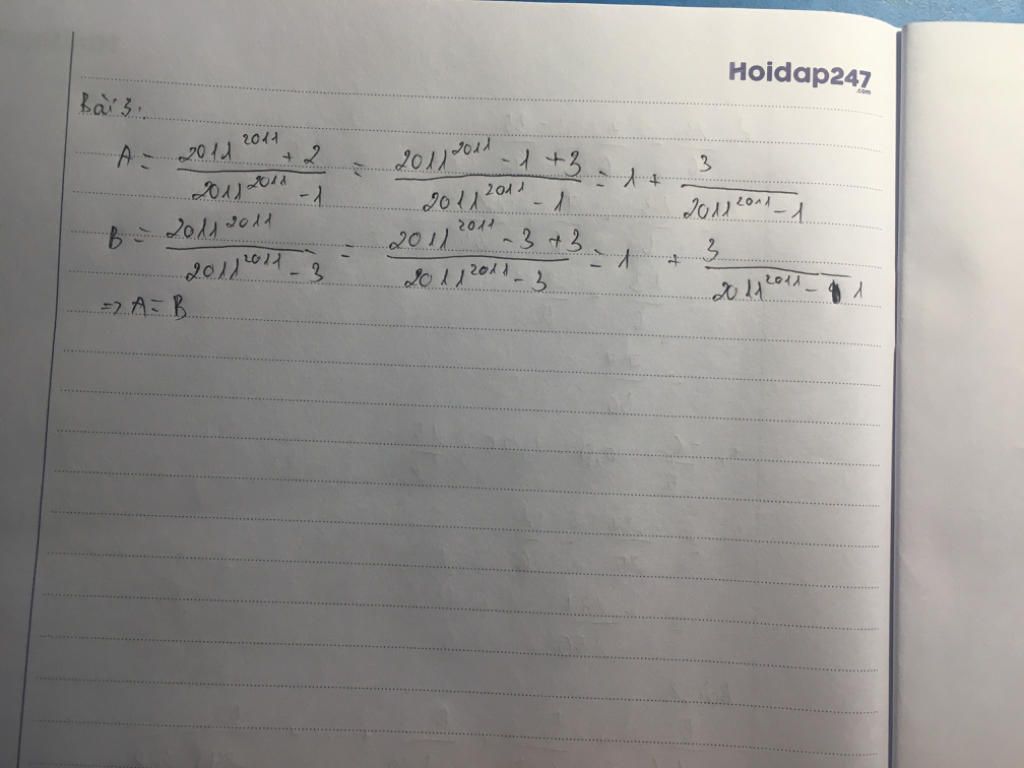 Hoidap247
.com
Bài 3:
A = \frac{2011^{2011} + 2}{2011^{2011} - 1} = \frac{2011^{2011} - 1 + 3}{2011^{2011} - 1} = 1 + \frac{3}{2011^{2011} - 1}
B = \frac{2011^{2011}}{2011^{2011} - 3} = \frac{2011^{2011} - 3 + 3}{2011^{2011} - 3} = 1 + \frac{3}{2011^{2011} - 1}
=> A = B